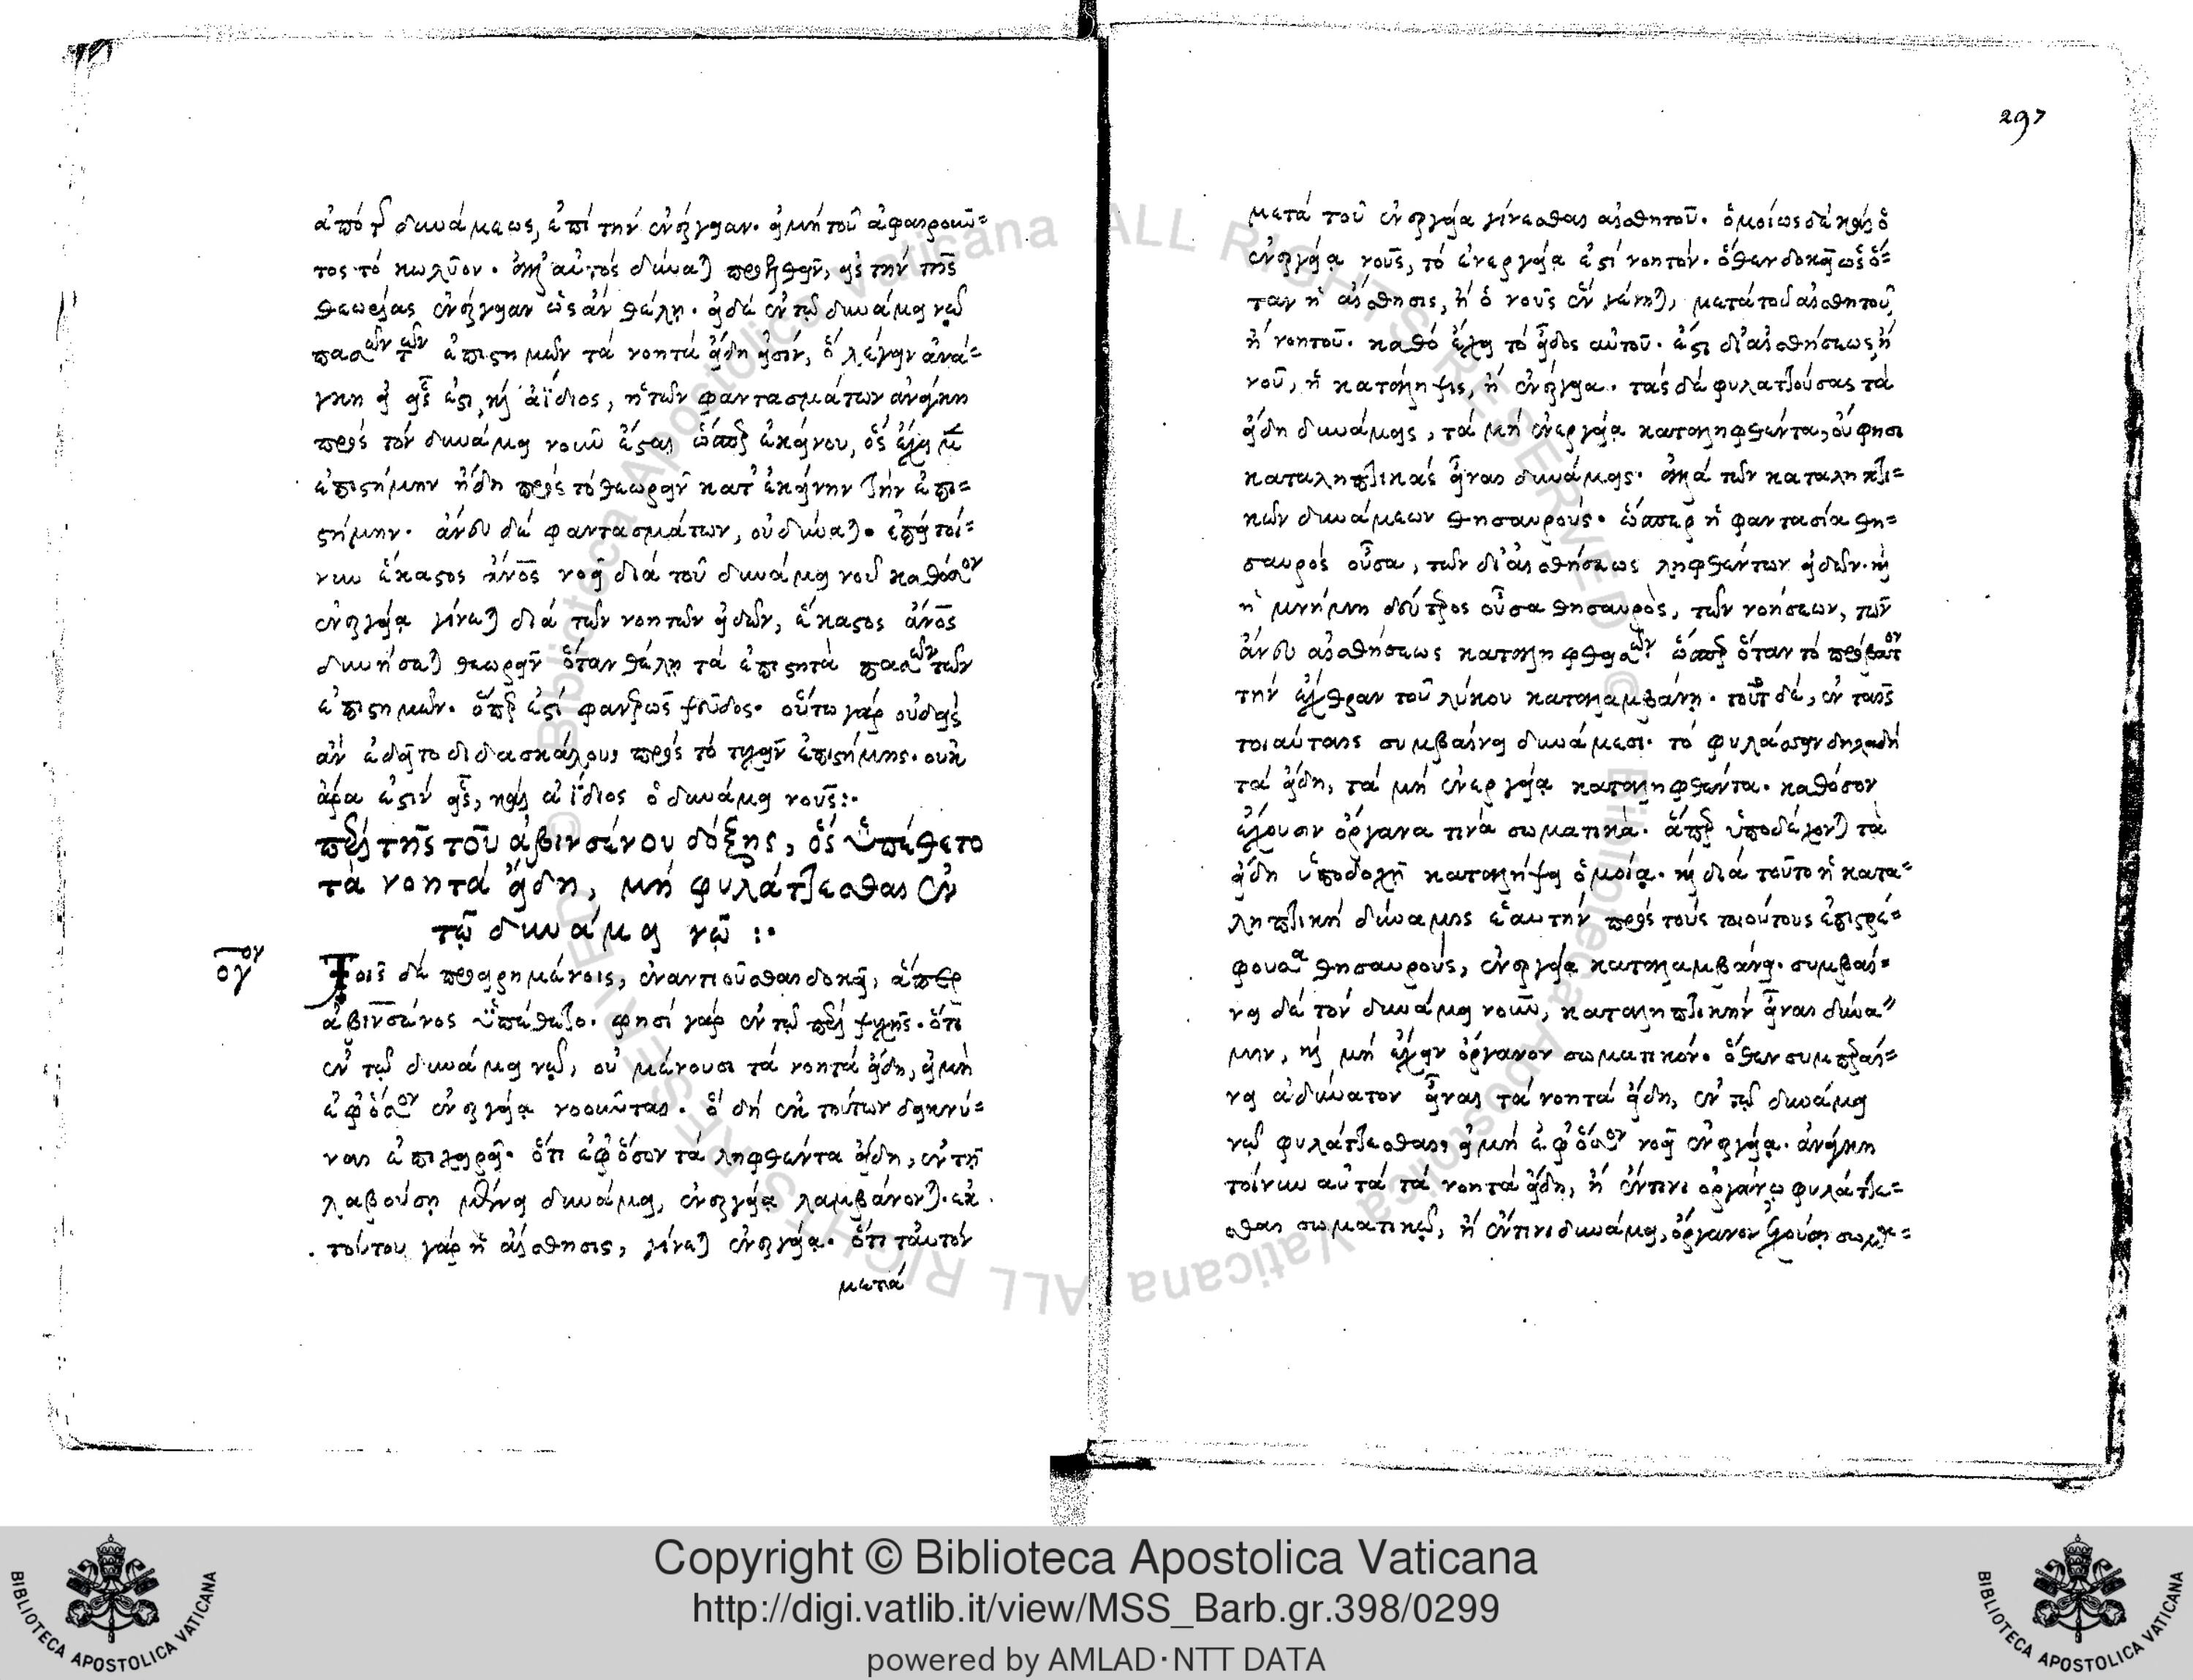 297
ἀπὸ τῆς δυνάμεως, ἐπὶ τὴν ἐνέργειαν. εἰ μὴ τοῦ ἀφαιροῦν-
τος τὸ κωλῦον. ἀλλ' αὐτὸς δύναται προελθεῖν, εἰς τὴν τῆς
θεωρίας ἐνέργειαν ὡς ἂν θέλῃ. εἰ δὲ ἐν τῷ δυνάμει νῷ
πασῶν τῶν ἐπιστημῶν τὰ νοητὰ εἴδη εἰσίν, ὃ λέγειν ἀνά-
γκη εἰ εἷς ἐστι καὶ ἀΐδιος, ἡ τῶν φαντασμάτων ἀνάγκη
πρὸς τὸν δυνάμει νοῦν ἔσται ὥσπερ ἐκείνου, ὃς ἔχει
ἐπιστήμην ἤδη πρὸς τὸ θεωρεῖν κατ' ἐκείνην τὴν ἐπι-
στήμην. ἄνευ δὲ φαντασμάτων, οὐ δύναται. ἐπεὶ τοί-
νυν ἕκαστος ἄνος νοεῖ διὰ τοῦ δυνάμει νοῦ καθόσον
ἐνεργείᾳ γίνεται διὰ τῶν νοητῶν εἰδῶν, ἕκαστος ἄνος
δυνήσεται θεωρεῖν ὅταν θέλῃ τὰ ἐπιστητὰ πασῶν τῶν
ἐπιστημῶν. ὅπερ ἐστὶ φανερῶς ψεῦδος. οὕτω γὰρ οὐδεὶς
ἂν ἐδεῖτο διδασκάλου πρὸς τὸ τυχεῖν ἐπιστήμης. οὐκ
ἄρα ἐστὶν εἷς, καὶ ἀΐδιος ὁ δυνάμει νοῦς:·
περὶ τῆς τοῦ ἀβινσένου δόξης, ὃς ὑπέθετο
τὰ νοητὰ εἴδη, μὴ φυλάττεσθαι ἐν
τῷ δυνάμει νῷ :·
ογον
Τοῖς δὲ προειρημένοις, ἐναντιοῦσθαι δοκεῖ, ἅπερ
ἀβινσένος ὑπέθετο. φησὶ γὰρ ἐν τῷ περὶ ψυχῆς. ὅτι
ἐν τῷ δυνάμει νῷ, οὐ μένουσι τὰ νοητὰ εἴδη, εἰ μὴ
ἐφ' ὅσον ἐνεργείᾳ νοοῦνται. ὃ δὴ ἐκ τούτων δεικνύ-
ναι ἐπιχειρεῖ. ὅτι ἐφ' ὅσον τὰ ληφθέντα εἴδη, ἐν τῇ
λαβούσῃ μένει δυνάμει, ἐνεργείᾳ λαμβάνονται. ἐκ
τούτου γὰρ ἡ αἴσθησις, γίνεται ἐνεργείᾳ. ὅτι ταυτὸν
μετὰ
μετὰ τοῦ ἐνεργείᾳ γίνεσθαι αἰσθητοῦ. ὁμοίως δὲ καὶ ὁ
ἐνεργείᾳ νοῦς, τὸ ἐνεργείᾳ ἐστὶ νοητόν. ὅθεν δοκεῖ ὡς ὅ-
ταν ἡ αἴσθησις, ἢ ὁ νοῦς ἓν γένηται, μετὰ τοῦ αἰσθητοῦ
ἢ νοητοῦ. καθὸ ἔχει τὸ εἶδος αὐτοῦ. ἔστι δι' αἰσθήσεως ἢ
νοῦ, ἢ κατάληψις, ἢ ἐνέργεια. τὰς δὲ φυλαττούσας τὰ
εἴδη δυνάμεις, τὰ μὴ ἐνεργείᾳ καταληφθέντα, οὔ φησι
καταληπτικὰς εἶναι δυνάμεις. ἀλλὰ τῶν καταληπτι-
κῶν δυνάμεων θησαυρούς. ὥσπερ ἡ φαντασία θη-
σαυρὸς οὖσα, τῶν δι' αἰσθήσεως ληφθέντων εἰδῶν. καὶ
ἡ μνήμη δεύτερος οὖσα θησαυρὸς, τῶν νοήσεων, τῶν
ἄνευ αἰσθήσεως καταληφθεισῶν. ὥσπερ ὅταν τὸ πρόβατον
τὴν ἔχθραν τοῦ λύκου καταλαμβάνῃ. τοῦτο δὲ, ἐν ταῖς
τοιαύταις συμβαίνει δυνάμεσι. τὸ φυλάσσειν δηλαδὴ
τὰ εἴδη, τὰ μὴ ἐνεργείᾳ καταληφθέντα. καθόσον
ἔχουσιν ὄργανα τινὰ σωματικὰ. ἅπερ ὑποδέχονται τὰ
εἴδη ὑποδοχῇ καταλήψει ὁμοίᾳ. καὶ διὰ τοῦτο ἡ κατα-
ληπτικὴ δύναμις ἑαυτὴν πρὸς τοὺς τοιούτους ἐπιστρέ-
φουσα θησαυρούς, ἐνεργείᾳ καταλαμβάνει. συμβαί-
νει δὲ τὸν δυνάμει νοῦν, καταληπτικὴν εἶναι δύνα-
μιν, καὶ μὴ ἔχειν ὄργανον σωματικόν. ὅθεν συμπεραί-
νει ἀδύνατον εἶναι τὰ νοητὰ εἴδη, ἐν τῷ δυνάμει
νῷ φυλάττεσθαι, εἰ μὴ ἐφ' ὅσον νοεῖ ἐνεργείᾳ. ἀνάγκη
τοίνυν αὐτὰ τὰ νοητὰ εἴδη, ἢ ἔν τινι ὀργάνῳ φυλάττε-
σθαι σωματικῷ, ἢ ἔν τινι δυνάμει, ὄργανον ἐχούσῃ σωμα-
Copyright © Biblioteca Apostolica Vaticana
http://digi.vatlib.it/view/MSS_Barb.gr.398/0299
powered by AMLAD·NTT DATA
BIBLIOTECA APOSTOLICA VATICANA
BIBLIOTECA APOSTOLICA VATICANA
© Biblioteca Apostolica Vaticana ALL RIGHTS RESERVED © Biblioteca Apostolica Vaticana ALL RIGHTS RESERVED